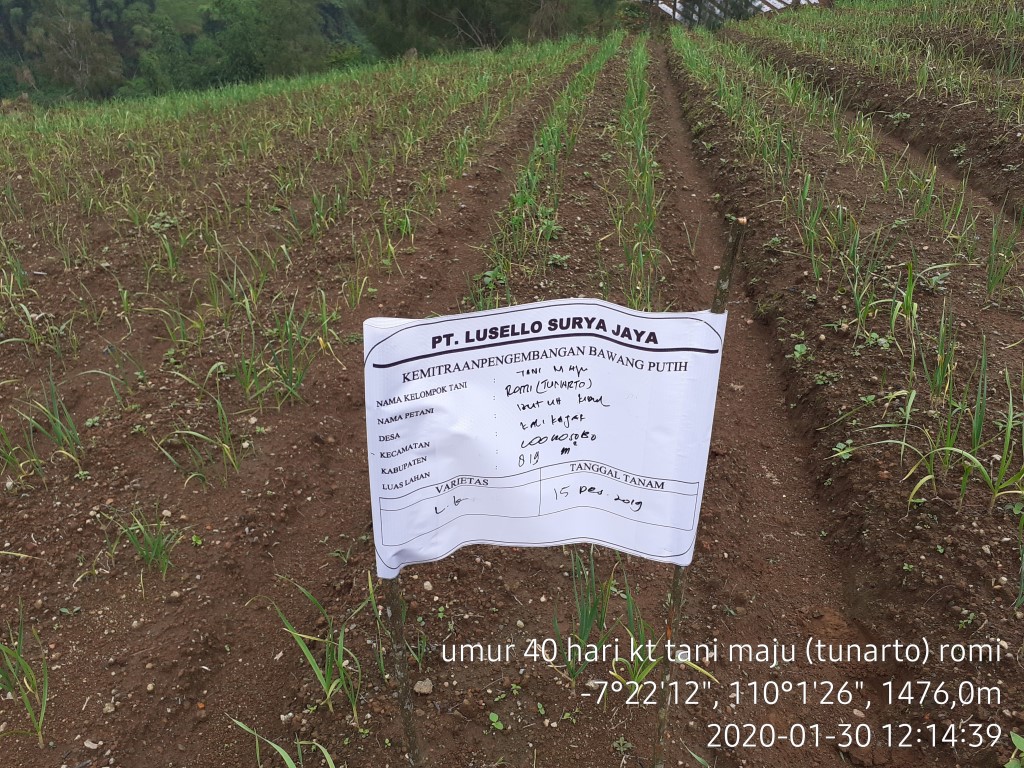 PT. LUSELLO SURYA JAYA
KEMITRAANPENGEMBANGAN BAWANG PUTIH
NAMA KELOMPOK TANI : TANI MAJU
NAMA PETANI : ROMI (TUNARTO)
DESA :
KECAMATAN : KALI KAJAR
KABUPATEN : WONOSOBO
LUAS LAHAN : 819 m²
VARIETAS TANGGAL TANAM
15 Des. 2019
umur 40 hari kt tani maju (tunarto) romi
-7°22'12", 110°1'26", 1476,0m
2020-01-30 12:14:39